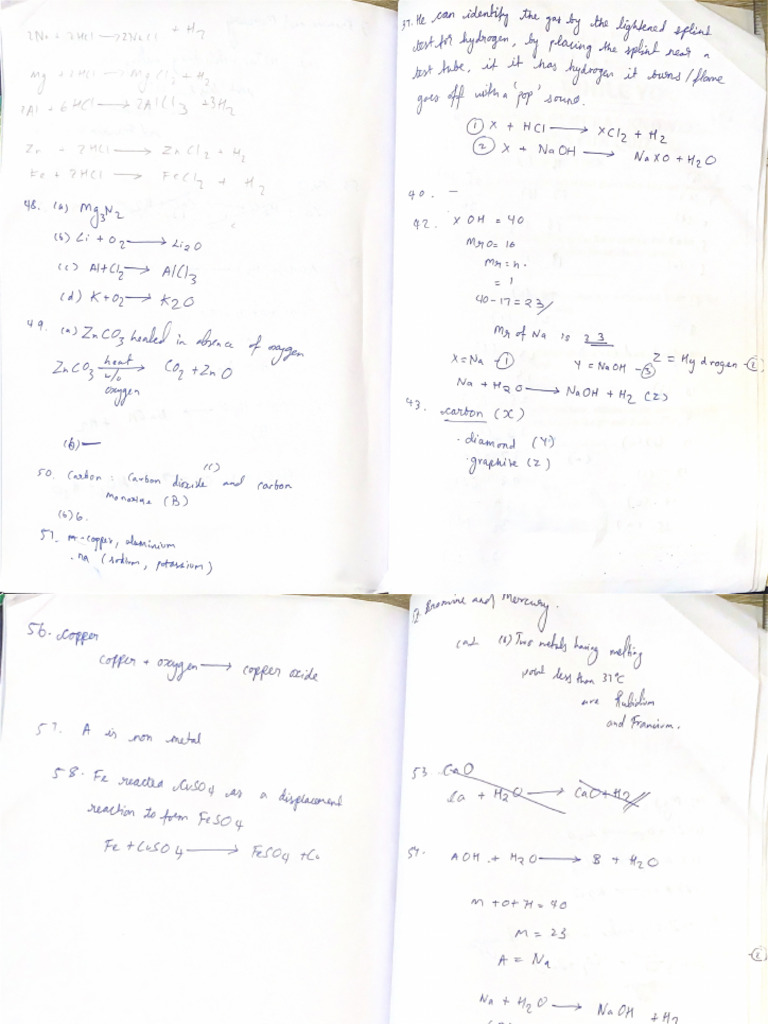 2Na + 2HCl → 2NaCl + H2
Mg + 2HCl → MgCl2 + H2
2Al + 6HCl → 2AlCl3 + 3H2
Zn + 2HCl → ZnCl2 + H2
Fe + 2HCl → FeCl2 + H2
48. (a) Mg3N2
(b) Li + O2 → Li2O
(c) Al + Cl2 → AlCl3
(d) K + O2 → K2O
49. (a) ZnCO3 heated in absence of oxygen
ZnCO3 heat w/o oxygen → CO2 + ZnO
(b) —
50. Carbon : Carbon dioxide (C) and carbon
monoxide (B)
(b) 6.
51. m - copper, aluminium
. na (sodium, potassium)
37. He can identify the gas by the lightened splint
test for hydrogen, by placing the splint near a
test tube, if it has hydrogen it burns / flame
goes off with a 'pop' sound.
① X + HCl → XCl2 + H2
② X + NaOH → NaXO + H2O
40. –
42. XOH = 40
Mr O = 16
Mr = H.
= 1
40 - 17 = 23/
Mr of Na is 23
X = Na - ① Y = NaOH - ③ Z = Hydrogen - ②
Na + H2O → NaOH + H2 (Z)
43. carbon (X)
. diamond (Y)
. graphite (Z)
56. Copper
copper + oxygen → copper oxide
57. A is non metal
58. Fe reacted CuSO4 as a displacement
reaction to form FeSO4
Fe + CuSO4 → FeSO4 + Cu
Bromine and Mercury.
(b) Two metals having melting
point less than 37°C
are Rubidium
and Francium.
53 CaO
Ca + H2O → CaO + H2
54. AOH + H2O → B + H2O
M + O + H = 40
M = 23
A = Na
②
Na + H2O → NaOH + H2